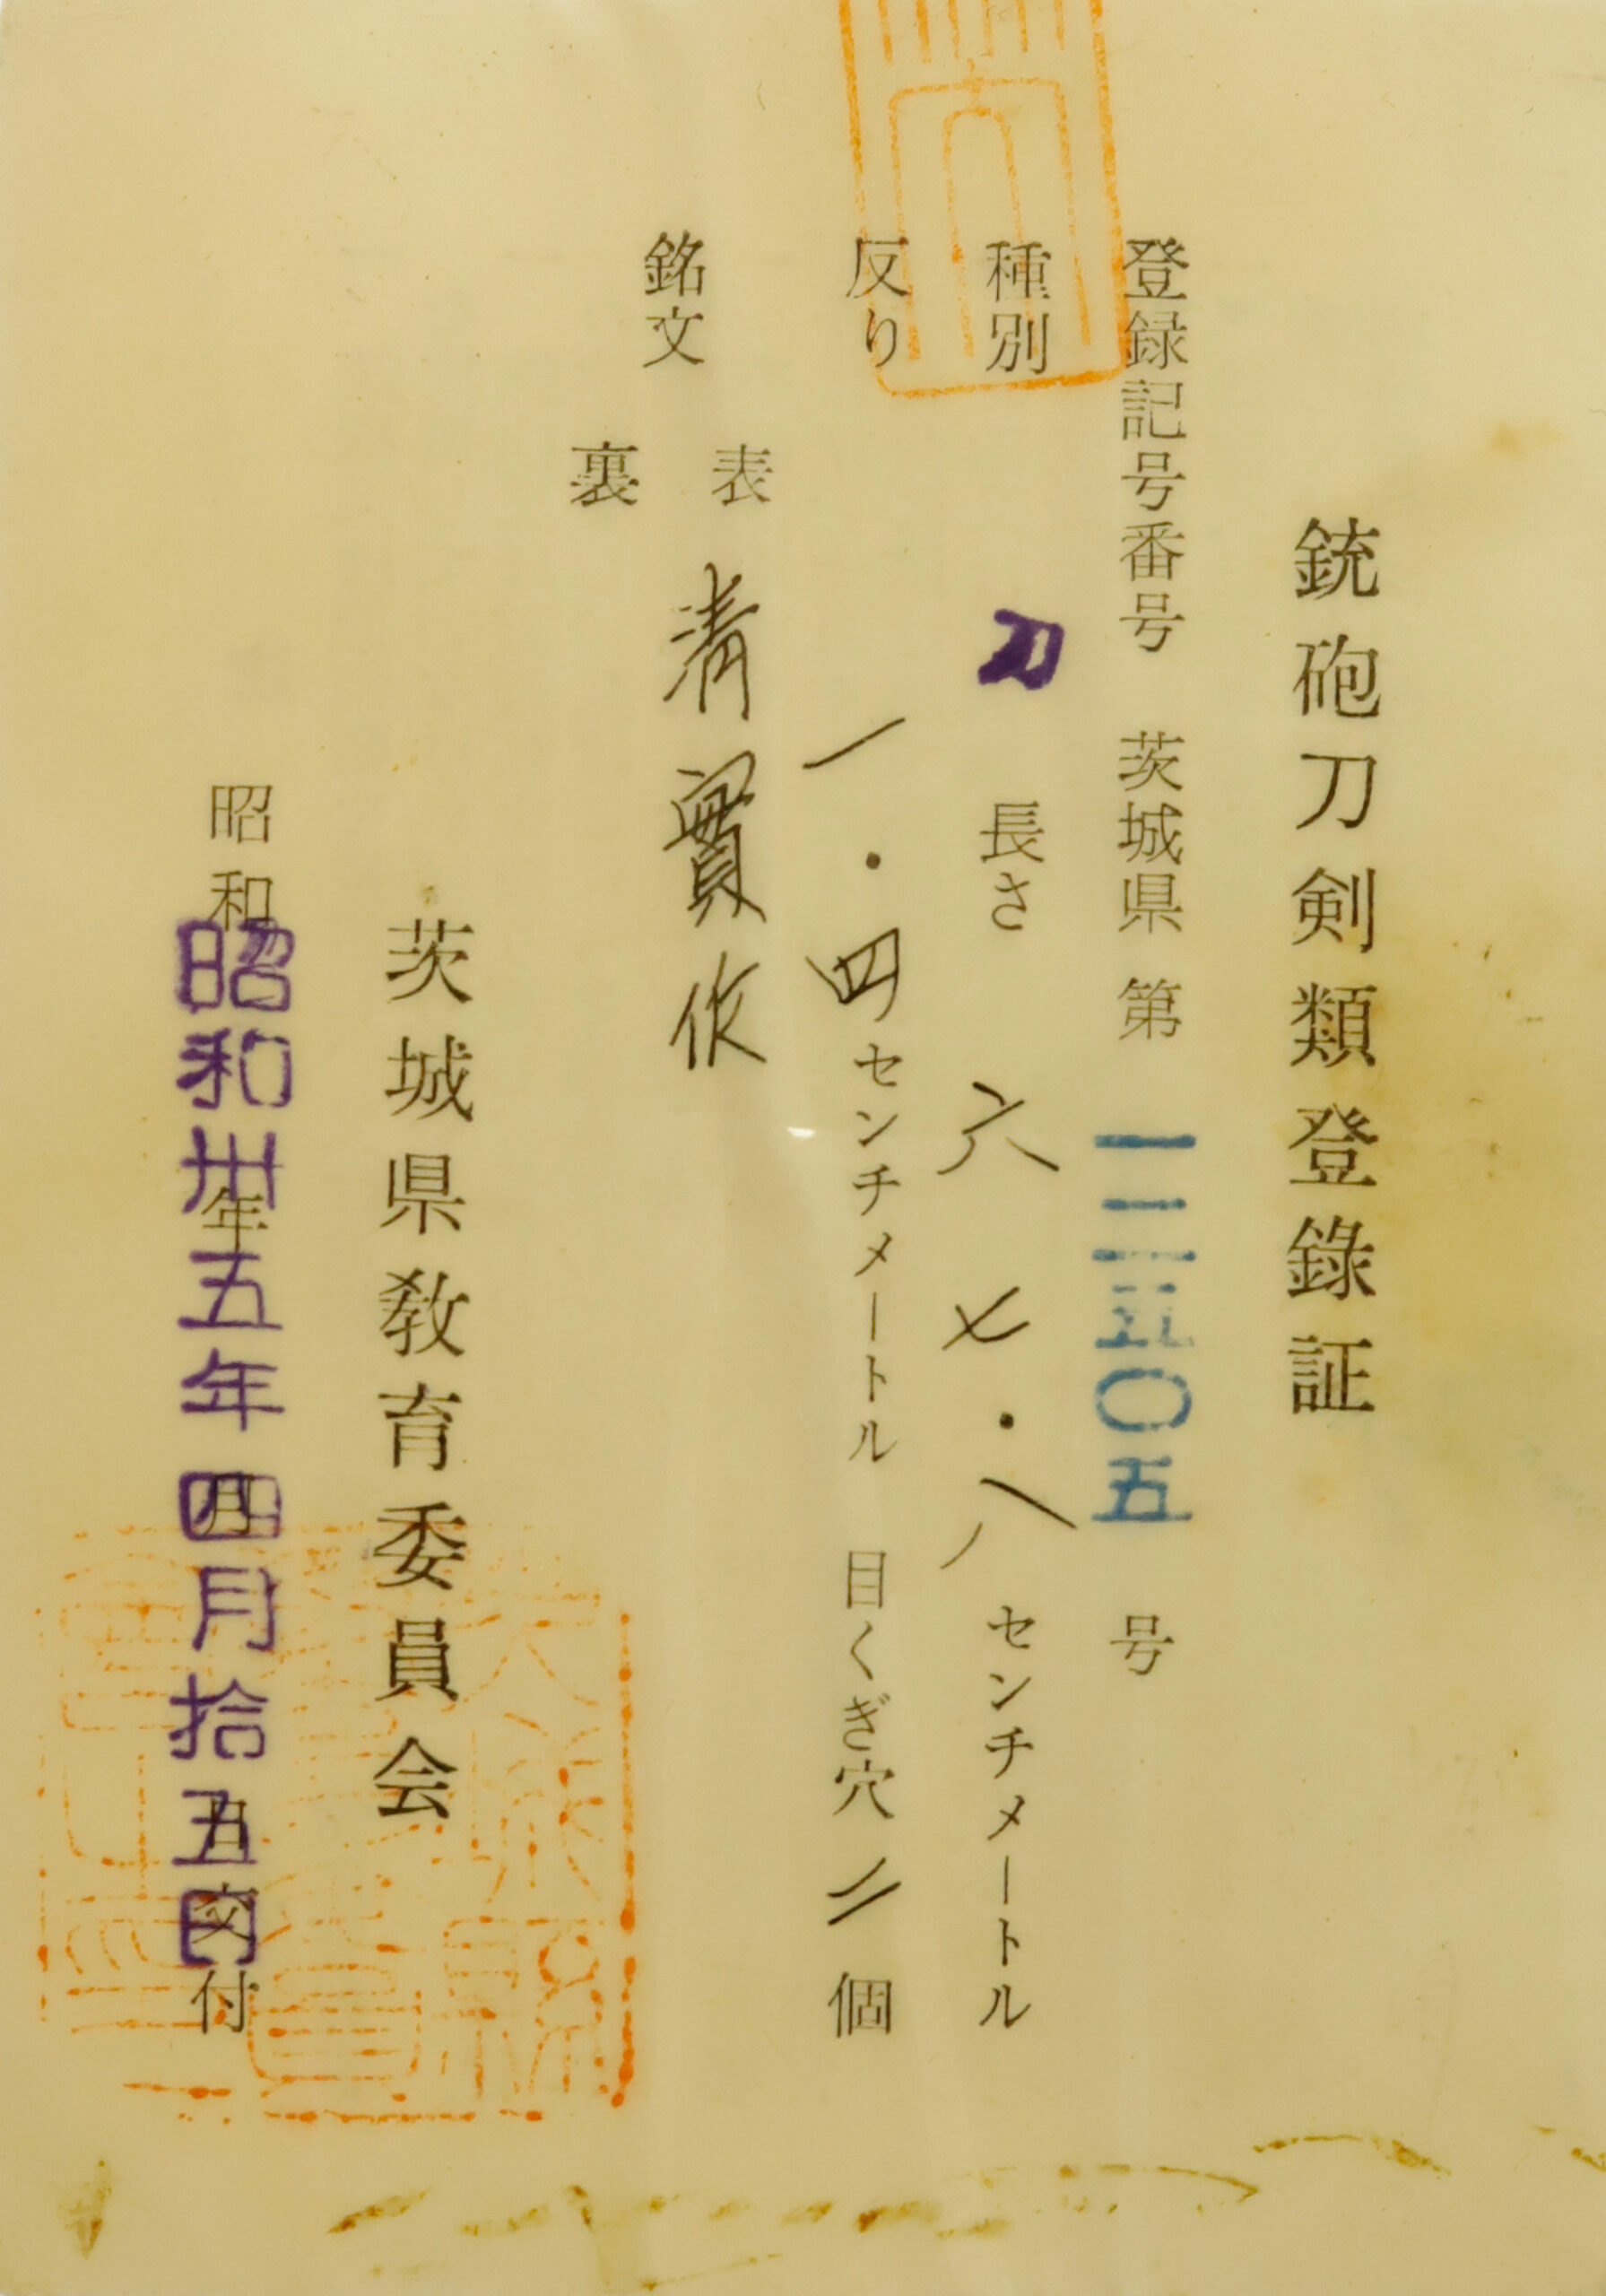 銃砲刀剣類登録証
登録記号番号 茨城県 第 一二五〇五 号
種別 刀 長さ 六七・八 センチメートル
反り 一・四 センチメートル 目くぎ穴 二 個
銘文 表 清實作
裏
茨城県教育委員会
昭和 年 月 日交付
昭和卅五年四月拾五日